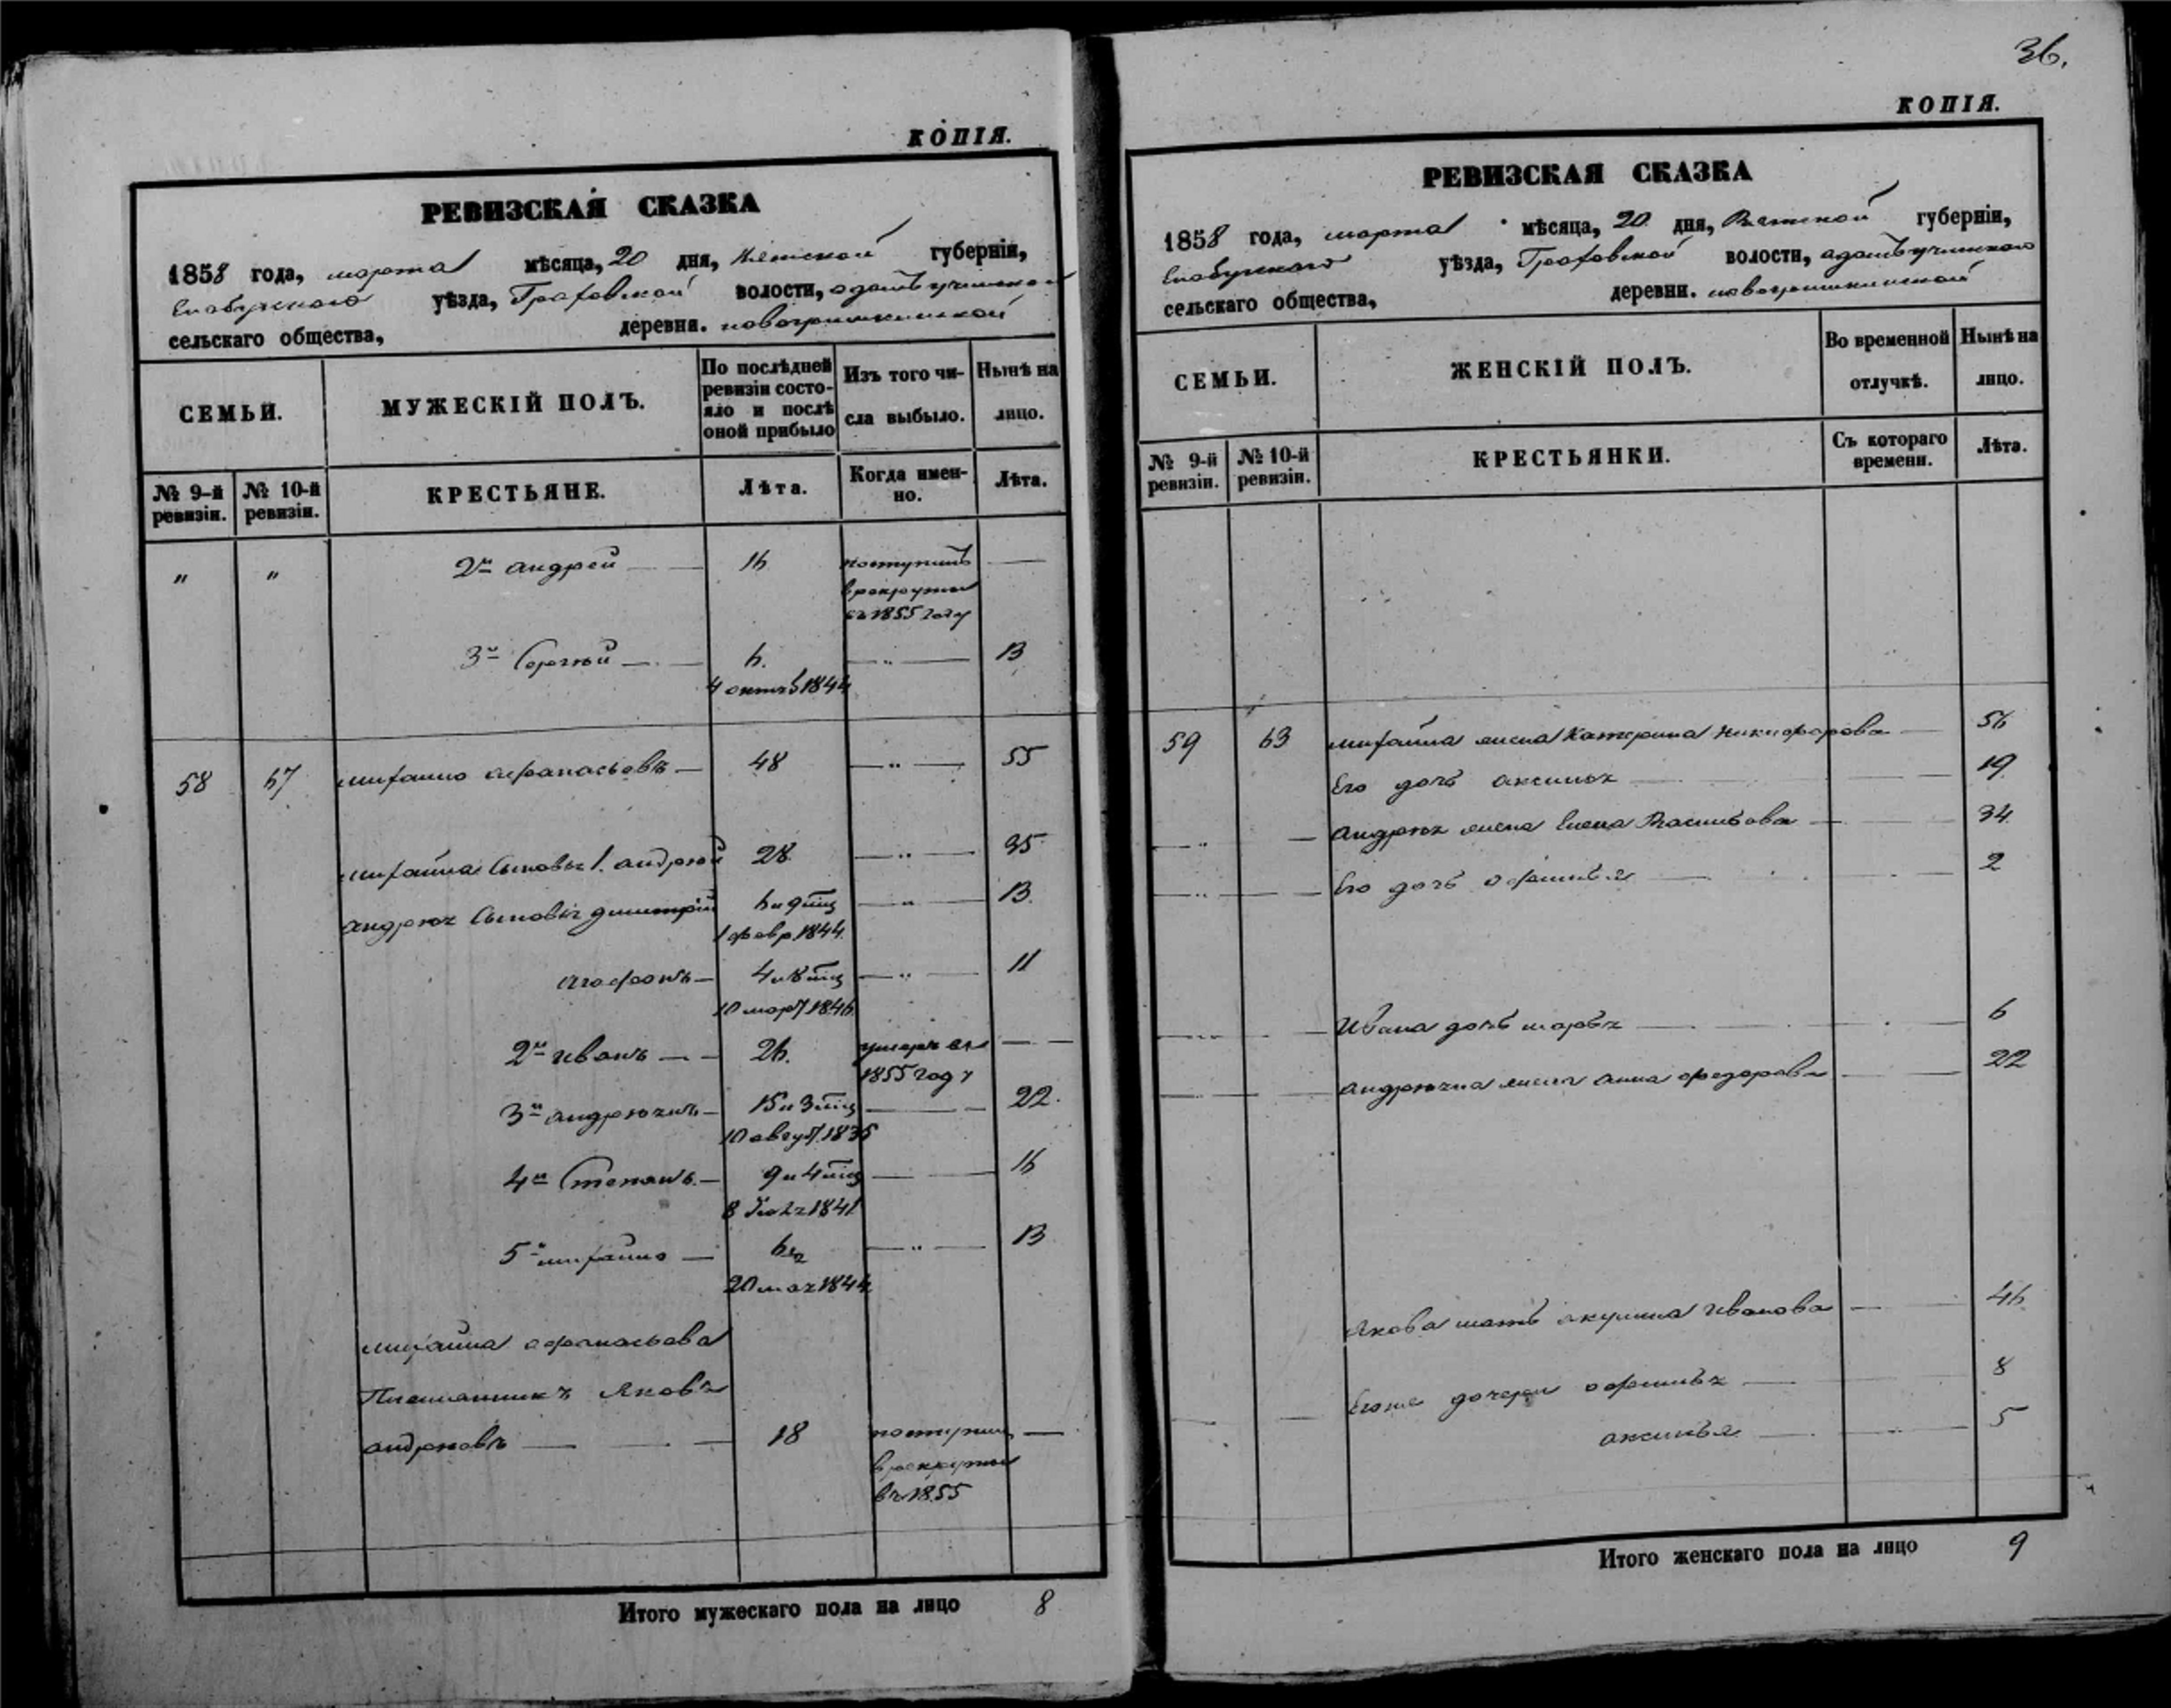 КОПІЯ.
РЕВИЗСКАЯ СКАЗКА
1858 года, марта мѣсяца, 20 дня, Вятской губерніи,
Елабужскаго уѣзда, Граховской волости,
сельскаго общества, деревни. новогришкинской
СЕМЬИ.
МУЖЕСКІЙ ПОЛЪ.
По послѣдней ревизіи состо-
яло и послѣ оной прибыло
Изъ того чи-
сла выбыло.
Нынѣ на
лицо.
№ 9-й ревизіи.
№ 10-й ревизіи.
КРЕСТЬЯНЕ.
Лѣта.
Когда имен-
но.
Лѣта.
" " 2й андрей 16 поступилъ —
в рекруты
въ 1855 году
3й Сергѣй 6. — " — 13
4 октяб 1844
58 67 михаило афанасьевъ 48 — " — 55
михайла сыновья 1. андрей 28 — " — 35
андрея сыновья димитрій 6 и 9 мѣц — " — 13.
1 февр. 1844.
агафонъ 4 и 8 мѣц — " — 11
10 март 1846
2й иванъ 26. умеръ въ —
1855 году
3й 15 и 3 мѣц — 22.
10 август. 1835
4й Степанъ 9 и 4 мѣц — 16
8 1841
5й михаило — " — 13
20 мая 1844
михайла афанасьева
Племянникъ Яковъ
андреевъ 18 поступил —
в рекруты
въ 1855
Итого мужескаго пола на лицо 8
36.
КОПІЯ.
РЕВИЗСКАЯ СКАЗКА
1858 года, марта мѣсяца, 20 дня, Вятской губерніи,
Елабужскаго уѣзда, Граховской волости,
сельскаго общества, деревни. новогришкинской
СЕМЬИ.
ЖЕНСКІЙ ПОЛЪ.
Во временной
отлучкѣ.
Нынѣ на
лицо.
№ 9-й ревизіи.
№ 10-й ревизіи.
КРЕСТЬЯНКИ.
Съ котораго
времени.
Лѣта.
59 63 михайла жена Катерина Никифорова 56
Его дочь аксинья 19
андрея жена Елена Васильева 34
Его дочь офимья 2
Ивана дочь марья 6
жена анна федорова 22
Якова мать акулина Иванова 46
Егоже дочери офимья 8
аксинья 5
Итого женскаго пола на лицо 9